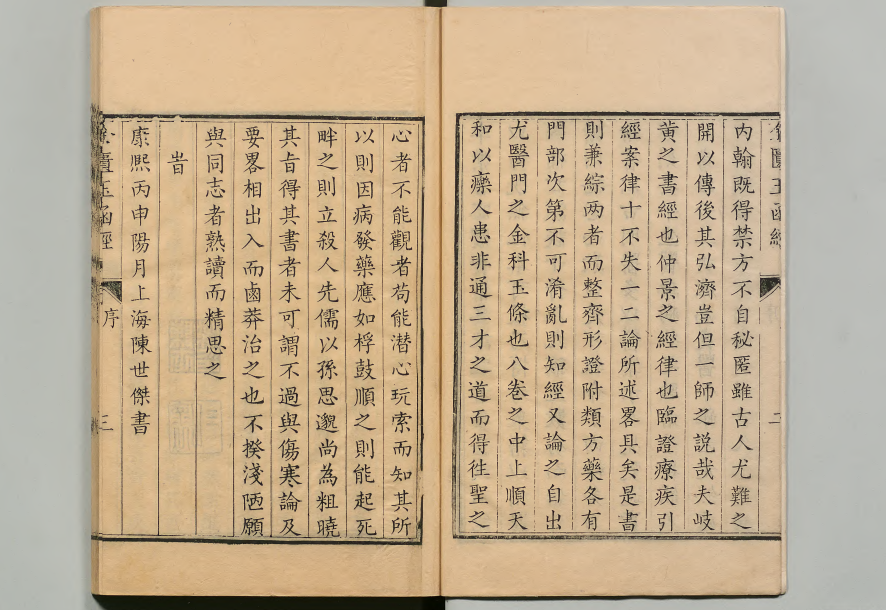 內翰既得禁方不自秘匿雖古人尤難之
開以傳後其弘濟豈但一師之説哉夫岐
黃之書經也仲景之經律也臨證療疾引
經案律十不失一二論所述畧具矣是書
則兼綜两者而整齊形證附類方藥各有
門部次第不可淆亂則知經又論之自出
尤醫門之金科玉條也八卷之中上順天
和以療人患非通三才之道而得徃聖之
二
心者不能觀者苟能潜心玩索而知其所
以則因病發藥應如桴鼓順之則能起死
畔之則立殺人先儒以孫思邈尚為粗曉
其㫖得其書者未可謂不過與傷寒論及
要畧相出入而鹵莽治之也不揆淺陋願
與同志者熟讀而精思之
旹
康熙丙申陽月上海陳世傑書
匱玉函經
序
三